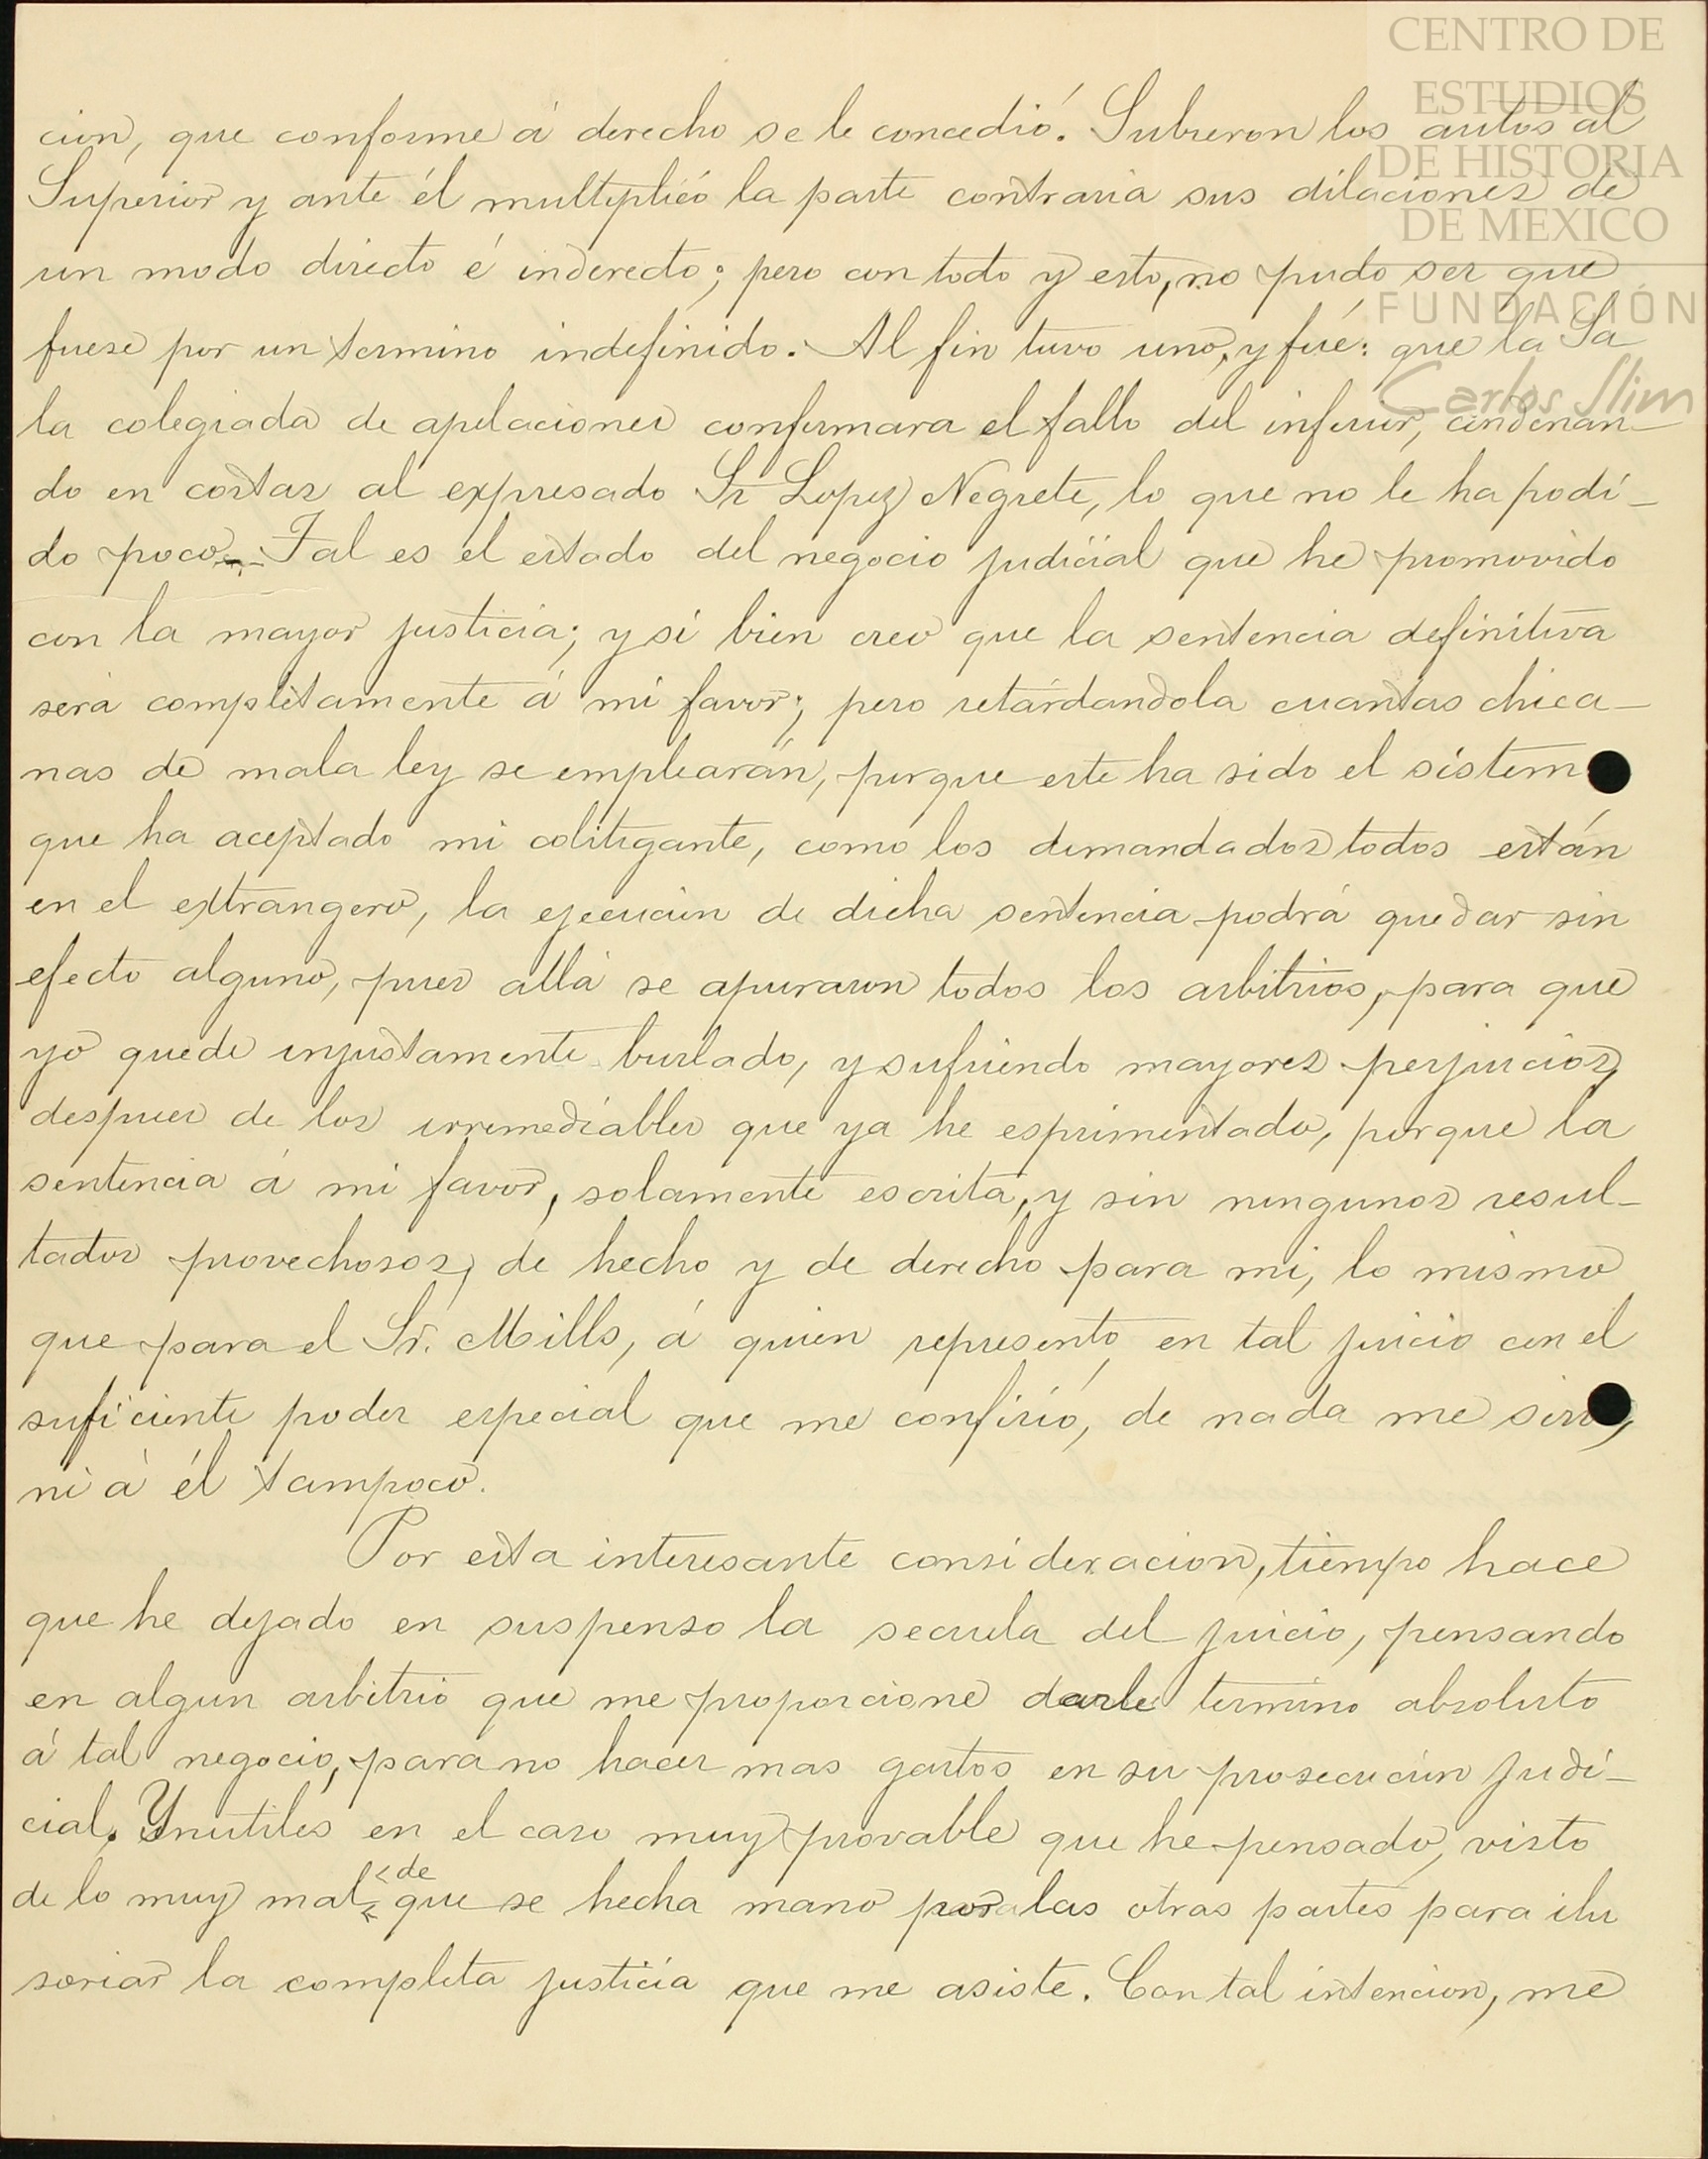 CENTRO DE
ESTUDIOS
DE HISTORIA
DE MEXICO
FUNDACIÓN
Carlos Slim
cion, que conforme á derecho se le concedió. Subieron los autos al
Superior y ante él multiplicó la parte contraria sus dilaciones de
un modo directo é inderecto; pero con todo y esto, no pudo ser que
fuese por un termino indefinido. Al fin tuvo uno, y fué: que la Sa
la colegiada de apelaciones confirmara el fallo del inferior, condenan-
do en costas al expresado Sr Lopez Negrete, lo que no le ha podi-
do poco. Tal es el estado del negocio judicial que he promovido
con la mayor justicia; y si bien creo que la sentencia definitiva
será completamente á mi favor; pero retárdandola cuantas chica-
nas de mala ley se emplearán, porque este ha sido el sistem
que ha aceptado mi colitigante, como los demandados todos están
en el extrangero, la ejecucion de dicha sentencia podrá quedar sin
efecto alguno, pues allá se apuraron todos los arbitrios, para que
yo quede injustamente burlado, y sufriendo mayores perjuicios,
despues de los irremediables que ya he esprimentado, porque la
sentencia á mi favor, solamente escrita, y sin ningunos resul-
tados provechosos, de hecho y de derecho para mi, lo mismo
que para el Sr. Mills, á quien represento en tal juicio con el
suficiente poder especial que me confirió, de nada me sirve,
ni á él tampoco.
Por esta interesante consideracion, tiempo hace
que he dejado en suspenso la secuela del juicio, pensando
en algun arbitrio que me proporcione darle termino absoluto
á tal negocio, para no hacer mas gastos en su prosecucion judi-
cial. Ynutiles en el caso muy provable que he pensado, visto
de lo muy mal de que se hecha mano por las otras partes para ilu
soriar la completa justicia que me asiste. Con tal intencion, me